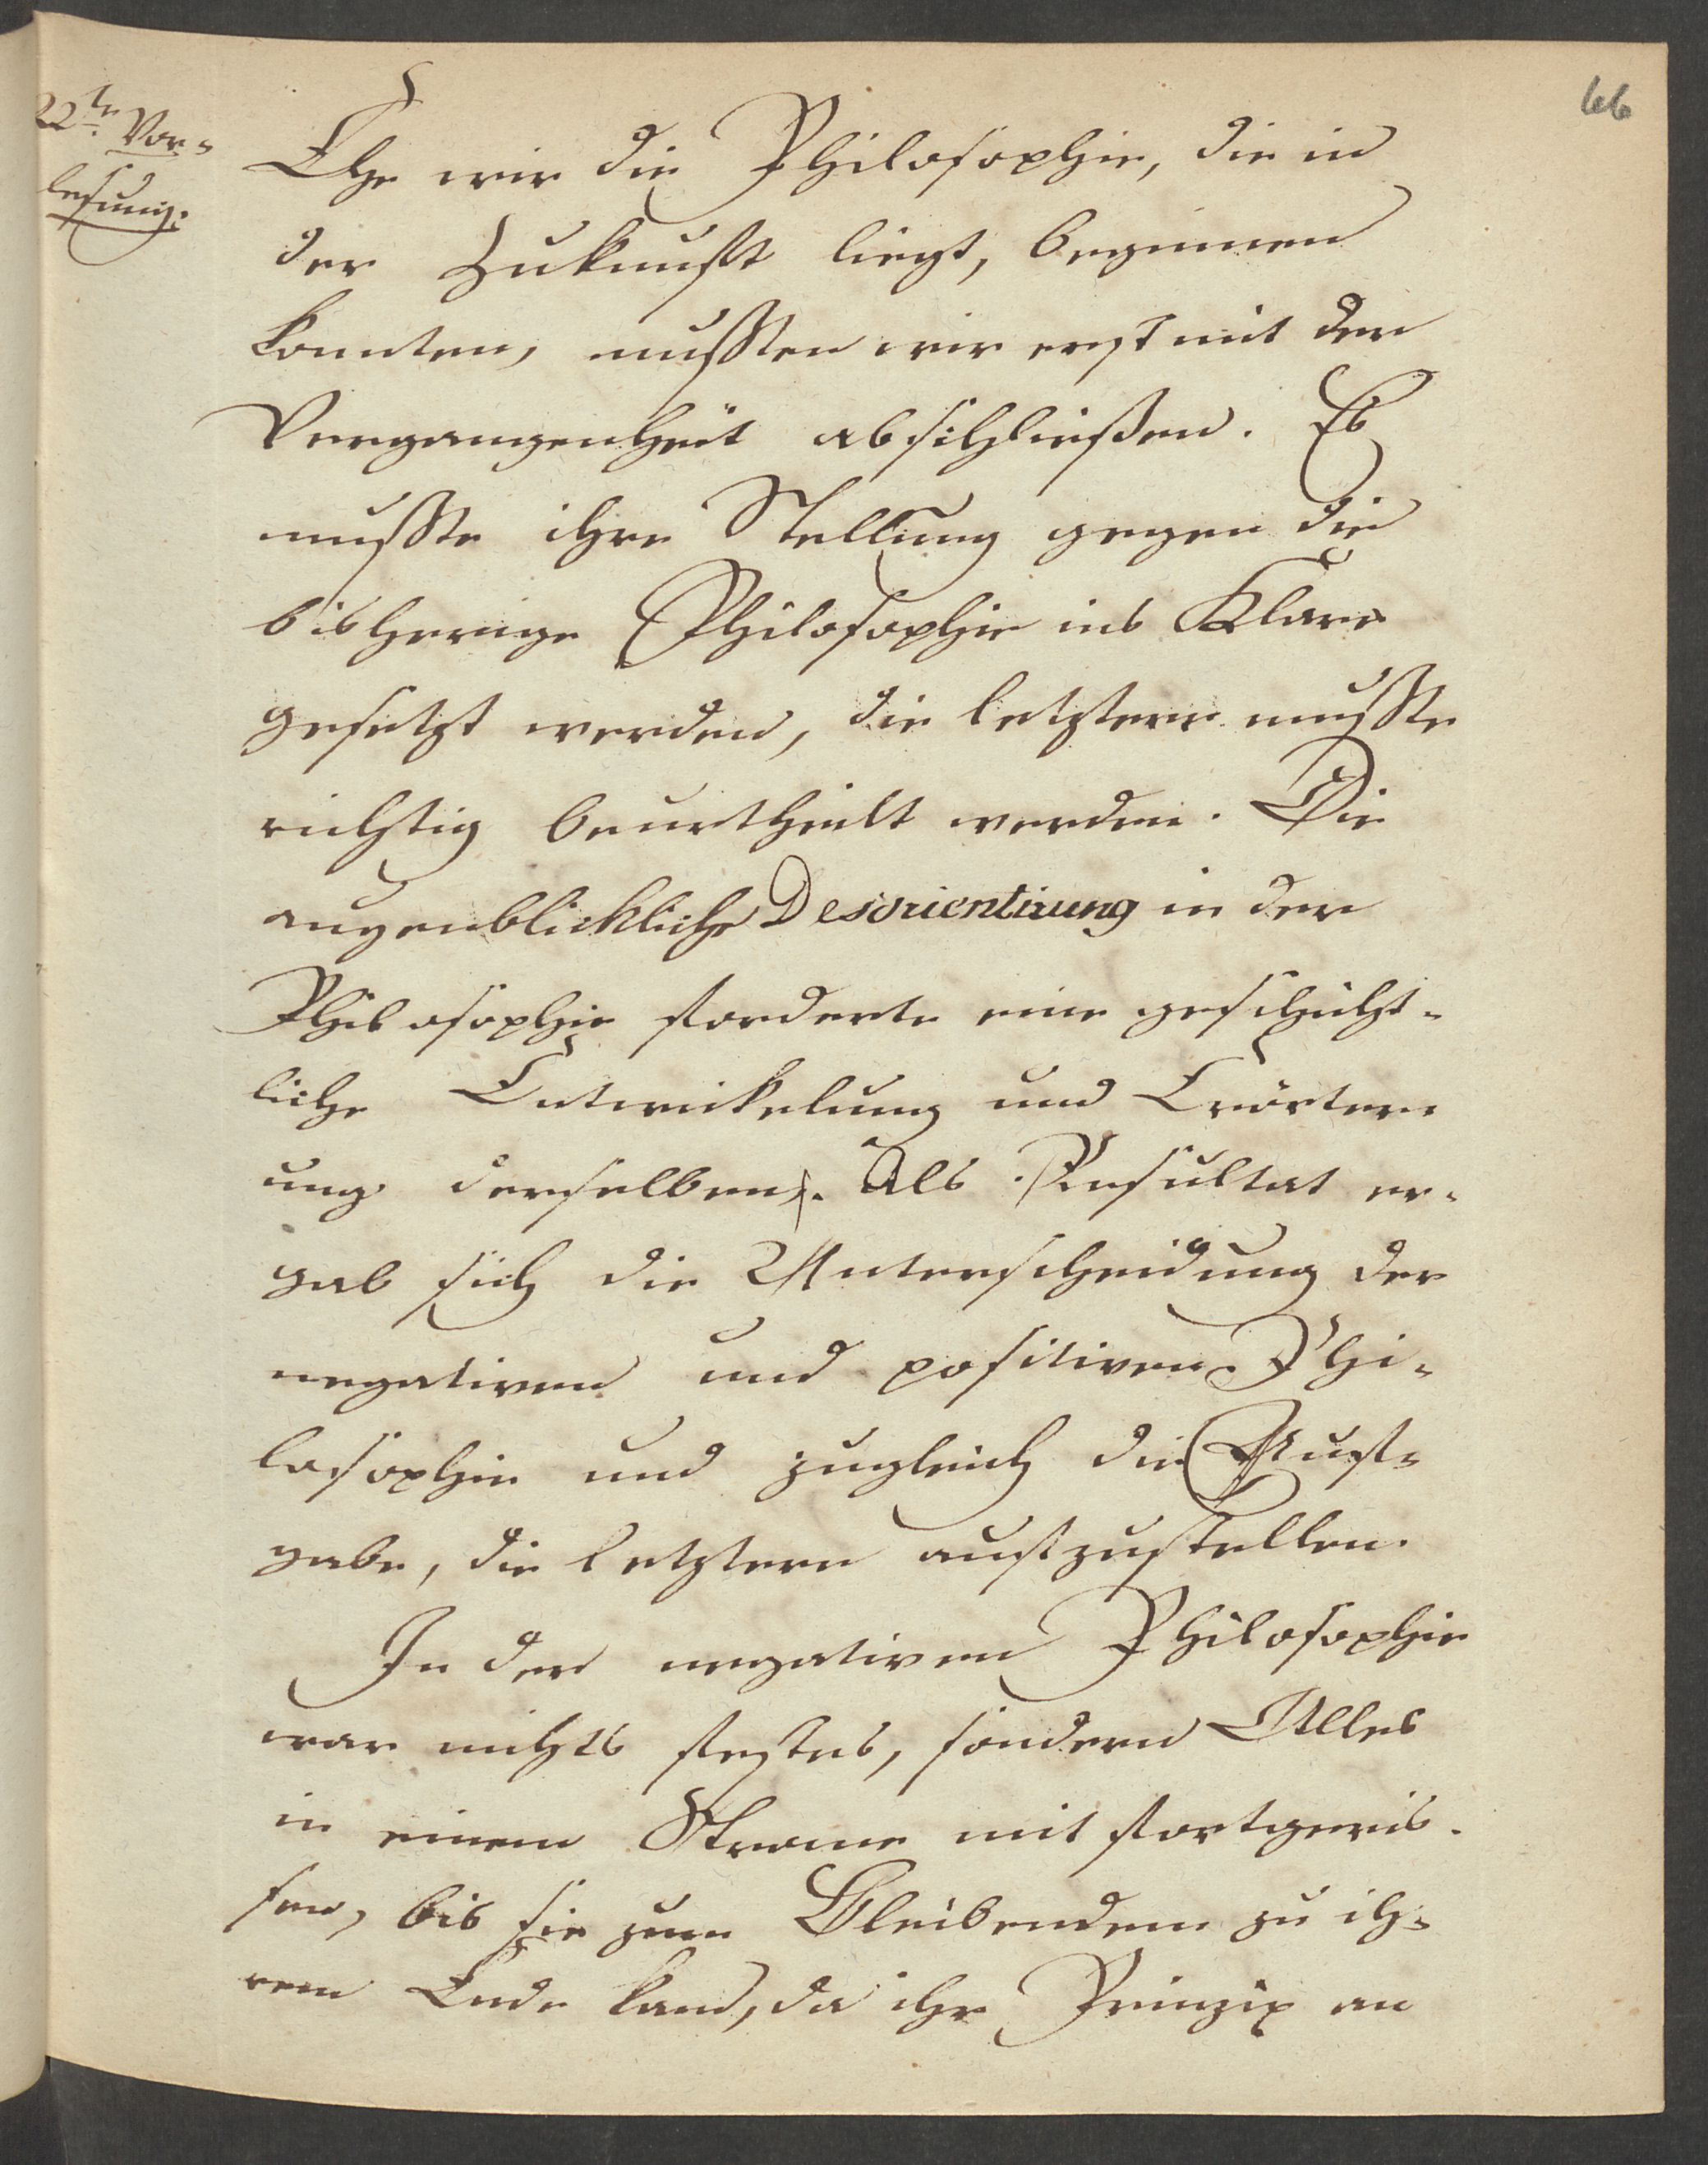 66
22te Vor-
lesung:
Ehe wir die Philosophie, die in
der Zukunft liegt, beginnen
konnten, mußten wir erst mit der
Vergangenheit abschließen. Es
mußte ihre Stellung gegen die
bisherige Philosophie ins Klare
gesetzt werden, die letztere mußte
richtig beurtheilt werden. Die
augenblickliche Desorientirung in der
Philosophie forderte eine geschicht-
liche Entwickelung und Erörter-
ung derselben. Als Resultat er-
gab sich die Unterscheidung der
negativen und positiven Phi-
losophie und zugleich die Auf-
gabe, die letztere aufzustellen.
In der negativen Philosophie
war nichts festes, sondern Alles
in einem Strome mit fortgeris-
sen, bis sie zum Bleibenden zu ih-
rem Ende kam, da ihr Prinzip an